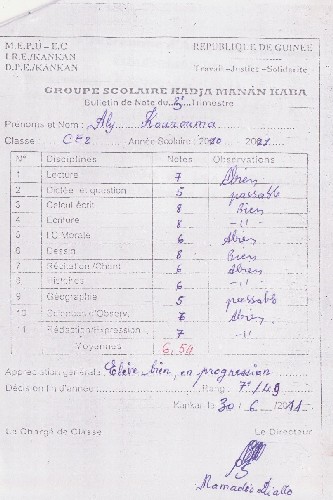 M.E.P.U - E.C REPUBLIQUE DE GUINEE
I.R.E./KANKAN
D.P.E./KANKAN Travail -Justice -Solidarité
GROUPE SCOLAIRE HADJA MANÂN KABA
Bulletin de Note du 3è Trimestre
Prénoms et Nom : Aly Kourouma
Classe CE2 Année Scolaire : 2010 2011
N° Disciplines Notes Observations
1 Lecture 7 ABien
2 Dictée et question 5 passable
3 Calcul écrit 8 Bien
4 Ecriture 8 -"-
5 I.C Morale 6 ABien
6 Dessin 8 Bien
7 Récitation /Chant 6 ABien
8 Histoires 6 -"-
9 Géographie 5 passable
10 Sciences d'Observ. 6 ABien
11 Rédaction/Expression 7 -"-
Moyennes 6,54
Appréciation générale Elève bien, en progression
Décision fin d'année Rang : 7è/49
Kankan, le 30 6 2011
Le Chargé de Classe Le Directeur
Mamadou Diallo